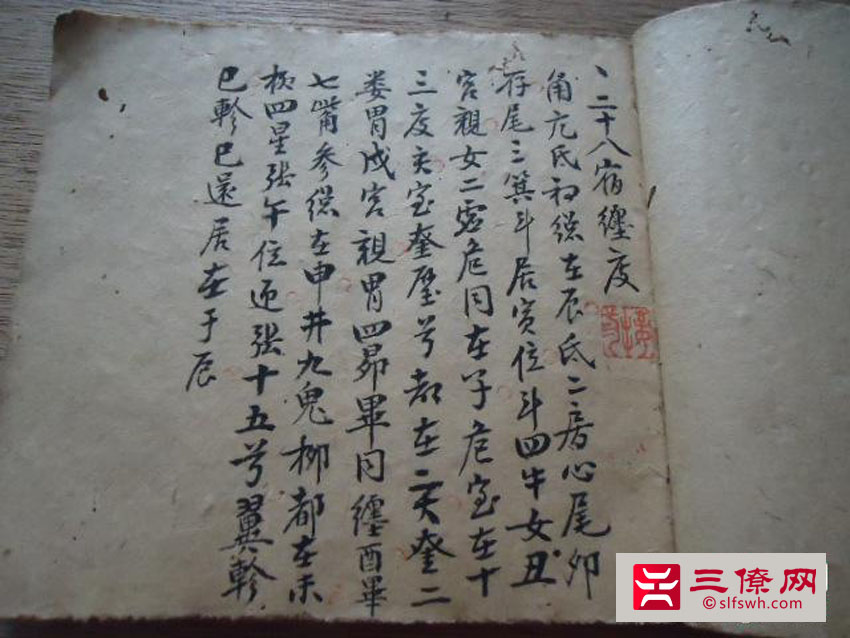 二十八宿纏度
角亢氐初總在辰氐二房心尾卯
存尾三箕斗居寅位斗四牛女丑
宮親女二虚危同在子危室在十
三度亥室奎壁兮都在亥奎二
娄胃戌宮親胃四昴畢同纏酉畢
七觜参總在申井九鬼柳都在未
柳四星張午位張十五兮翼軫
巳軫巳還居在于辰
三僚网
©slfswh.com